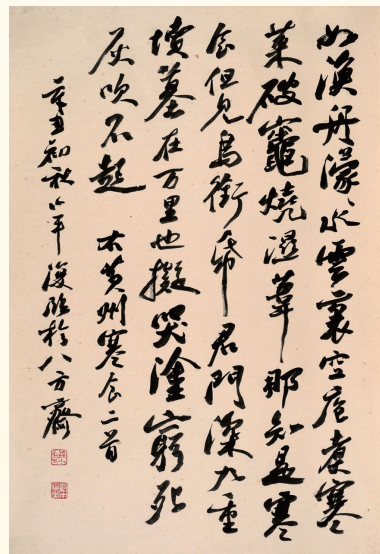 如漁舟濛々水雲裏空庖煮寒
菜破竈燒濕葦那知是寒
食但見烏銜帋君門深九重
墳墓在万里也擬哭塗窮死
灰吹不起 右黃州寒食二首
辛丑初秋 於八方齋